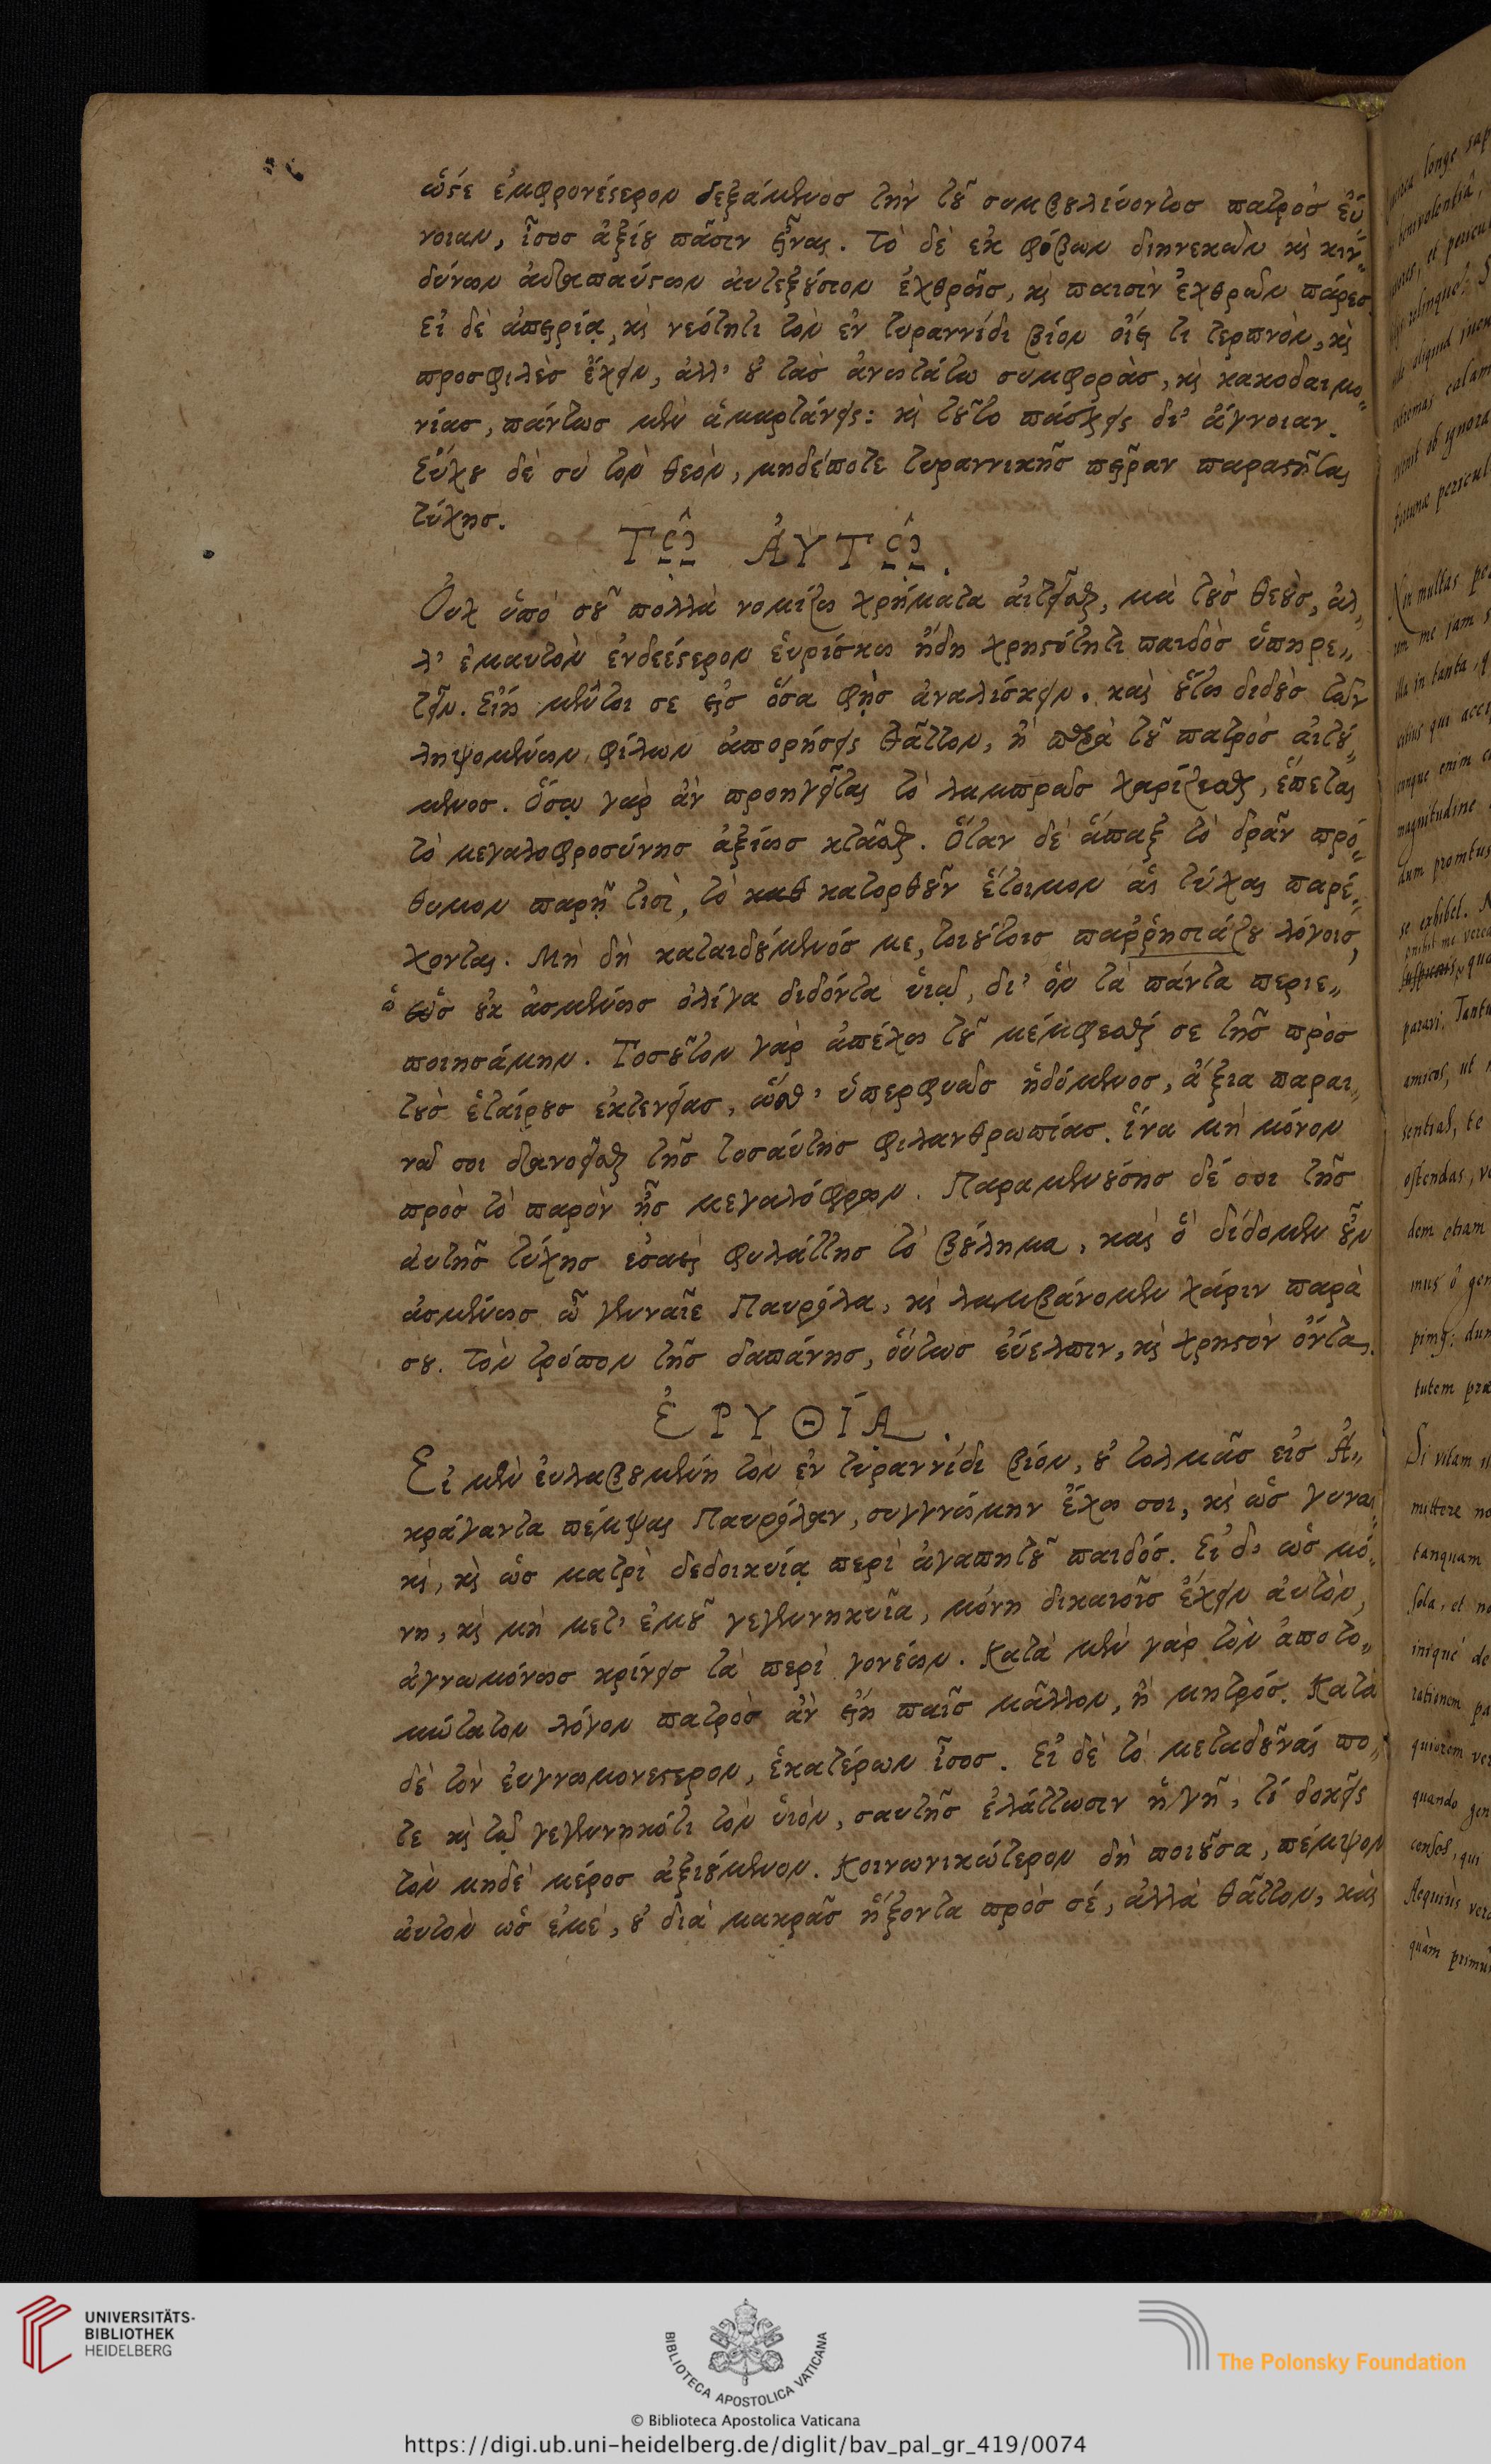 ὥστε ἐμφρονέστερον δεξάμενος τὴν τοῦ συμβουλεύοντος πατρὸς εὔ-
νοιαν, ἴσος ἀξίου πᾶσιν εἶναι. Τὸ δὲ ἐκ φόβων διηνεκῶν καὶ κιν-
δύνων ἀδιαπαύστων αὐτεξούσιον ἐχθροῖς, καὶ παισὶν ἐχθρῶν πάρες
Εἰ δὲ ἀπειρίᾳ, καὶ νεότητι τὸν ἐν τυραννίδι βίον οἴει τι τερπνὸν, καὶ
προσφιλὲς ἔχειν, ἀλλ' οὐ τὰς ἀνωτάτω συμφορὰς, καὶ κακοδαιμο-
νίας, πάντως μὲν ἁμαρτάνεις: καὶ τοῦτο πάσχεις δι' ἄγνοιαν.
Εὔχου δὲ σὺ τὸν θεὸν, μηδέποτε τυραννικῆς πεῖραν παραστῆναι
τύχης.
ΤΩ͂ ΑΥ̓ΤΩ͂.
Οὐχ ὑπό σοῦ πολλὰ νομίζω χρήματα αἰτεῖσθαι, μὰ τοὺς θεοὺς, ἀλ-
λ' ἐμαυτὸν ἐνδεέστερον εὑρίσκω ἤδη χρηστότητι παιδὸς ὑπηρε-
τεῖν. Εἴη μέντοι σε εἰς ὅσα φῂς ἀναλίσκειν. καὶ οὕτω διδοὺς τῶν
ληψομένων φίλων ἀπορήσεις θᾶττον, ἢ παρὰ τοῦ πατρὸς αἰτού-
μενος. Ὅσῳ γὰρ ἂν προηγεῖται τὸ λαμπρῶς χαρίζεσθαι, ἕπεται
τὸ μεγαλοφροσύνης ἀξίως κτᾶσθαι. Ὅταν δὲ ἅπαξ τὸ δρᾶν πρό-
θυμον παρῇ τισὶ, τὸ καθ κατορθοῦν ἕτοιμον αἱ τύχαι παρέ-
χονται. Μὴ δὴ καταιδούμενός με, τοιούτοις παῤῥησιάζου λόγοις,
ὡς οὐκ ἀσμένως ὀλίγα διδόντα υἱῷ, δι' ὃν τὰ πάντα περιε-
ποιησάμην. Τοσοῦτον γὰρ ἀπέχω τοῦ μέμφεσθαί σε τῆς πρὸς
τοὺς ἑταίρους ἐκτενείας, ὥσθ' ὑπερφυῶς ἡδόμενος, ἄξια παραι-
νῶ σοι διανοεῖσθαι τῆς τοσαύτης φιλανθρωπίας. ἵνα μὴ μόνον
πρὸς τὸ παρὸν ᾖς μεγαλόφρων. Παραμενούσης δέ σοι τῆς
αὐτῆς τύχης ἐσαεὶ φυλάττῃς τὸ βούλημα, καὶ ὃ δίδομεν οὖν
ἀσμένως ὦ γενναῖε Παυρόλα, καὶ λαμβάνομεν χάριν παρὰ
σου. τὸν τρόπον τῆς δαπάνης, οὕτως εὔελπιν, καὶ χρηστὸν ὄντα.
ἘΡΥΘΊΑ͵.
Εἰ μὲν εὐλαβουμένη τὸν ἐν τυραννίδι βίον, οὐ τολμᾷς εἰς Ἀ-
κράγαντα πέμψαι Παυρόλαν, συγγνώμην ἔχω σοι, καὶ ὡς γυναι-
κὶ, καὶ ὡς ματρὶ δεδοικυίᾳ περὶ ἀγαπητοῦ παιδός. Εἰ δ' ὡς μό-
νη, καὶ μὴ μετ' ἐμοῦ γεγεννηκυῖα, μόνη δικαιοῖς ἔχειν αὐτὸν,
ἀγνωμόνως κρίνεις τὰ περὶ γονέων. Κατὰ μὲν γὰρ τὸν ἀποτο-
μώτατον λόγον πατρὸς ἂν εἴη παῖς μᾶλλον, ἢ μητρός. Κατὰ
δὲ τὸν εὐγνωμονεστερον, ἑκατέρων ἴσος. Εἰ δὲ τὸ μεταδοῦναί πο-
τε καὶ τῷ γεγεννηκότι τὸν υἱὸν, σαυτῆς ἐλάττωσιν ἡγῇ, τί δοκεῖς
τὸν μηδὲ μέρος ἀξιούμενον. Κοινωνικώτερον δὴ ποιοῦσα, πέμψον
αὐτὸν ὡς ἐμὲ, οὐ διὰ μακρᾶς ἥξοντα πρὸς σέ, ἀλλὰ θᾶττον, καὶ
UNIVERSITÄTS-
BIBLIOTHEK
HEIDELBERG
BIBLIOTECA APOSTOLICA VATICANA
The Polonsky Foundation
© Biblioteca Apostolica Vaticana
https://digi.ub.uni-heidelberg.de/diglit/bav_pal_gr_419/0074